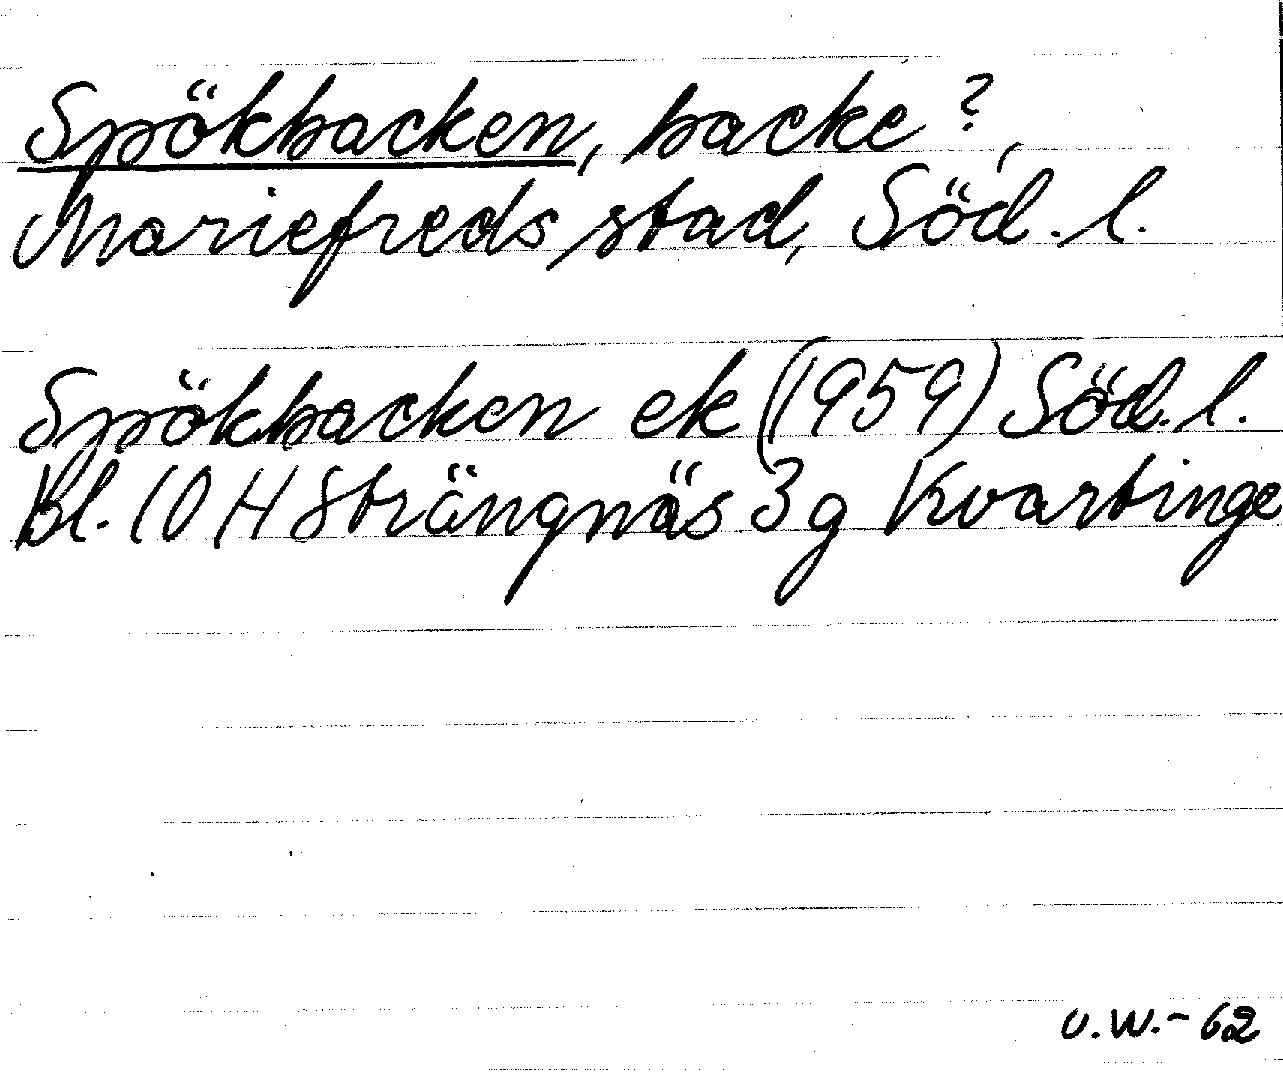 Spökbacken, backe?,
Mariefreds stad, Söd. l.
Spökbacken ek (1959) Söd. l.
Bl. 10 H Strängnäs 3 g Kvartinge
U.W.-62